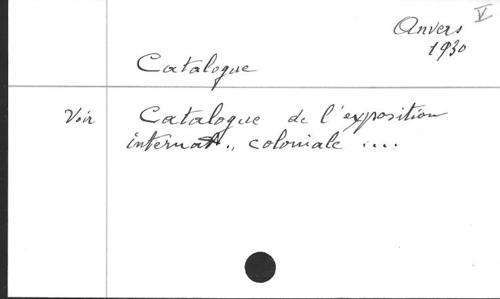 Anvers V
1930
Catalogue
Voir Catalogue de l'exposition
internat., coloniale ....